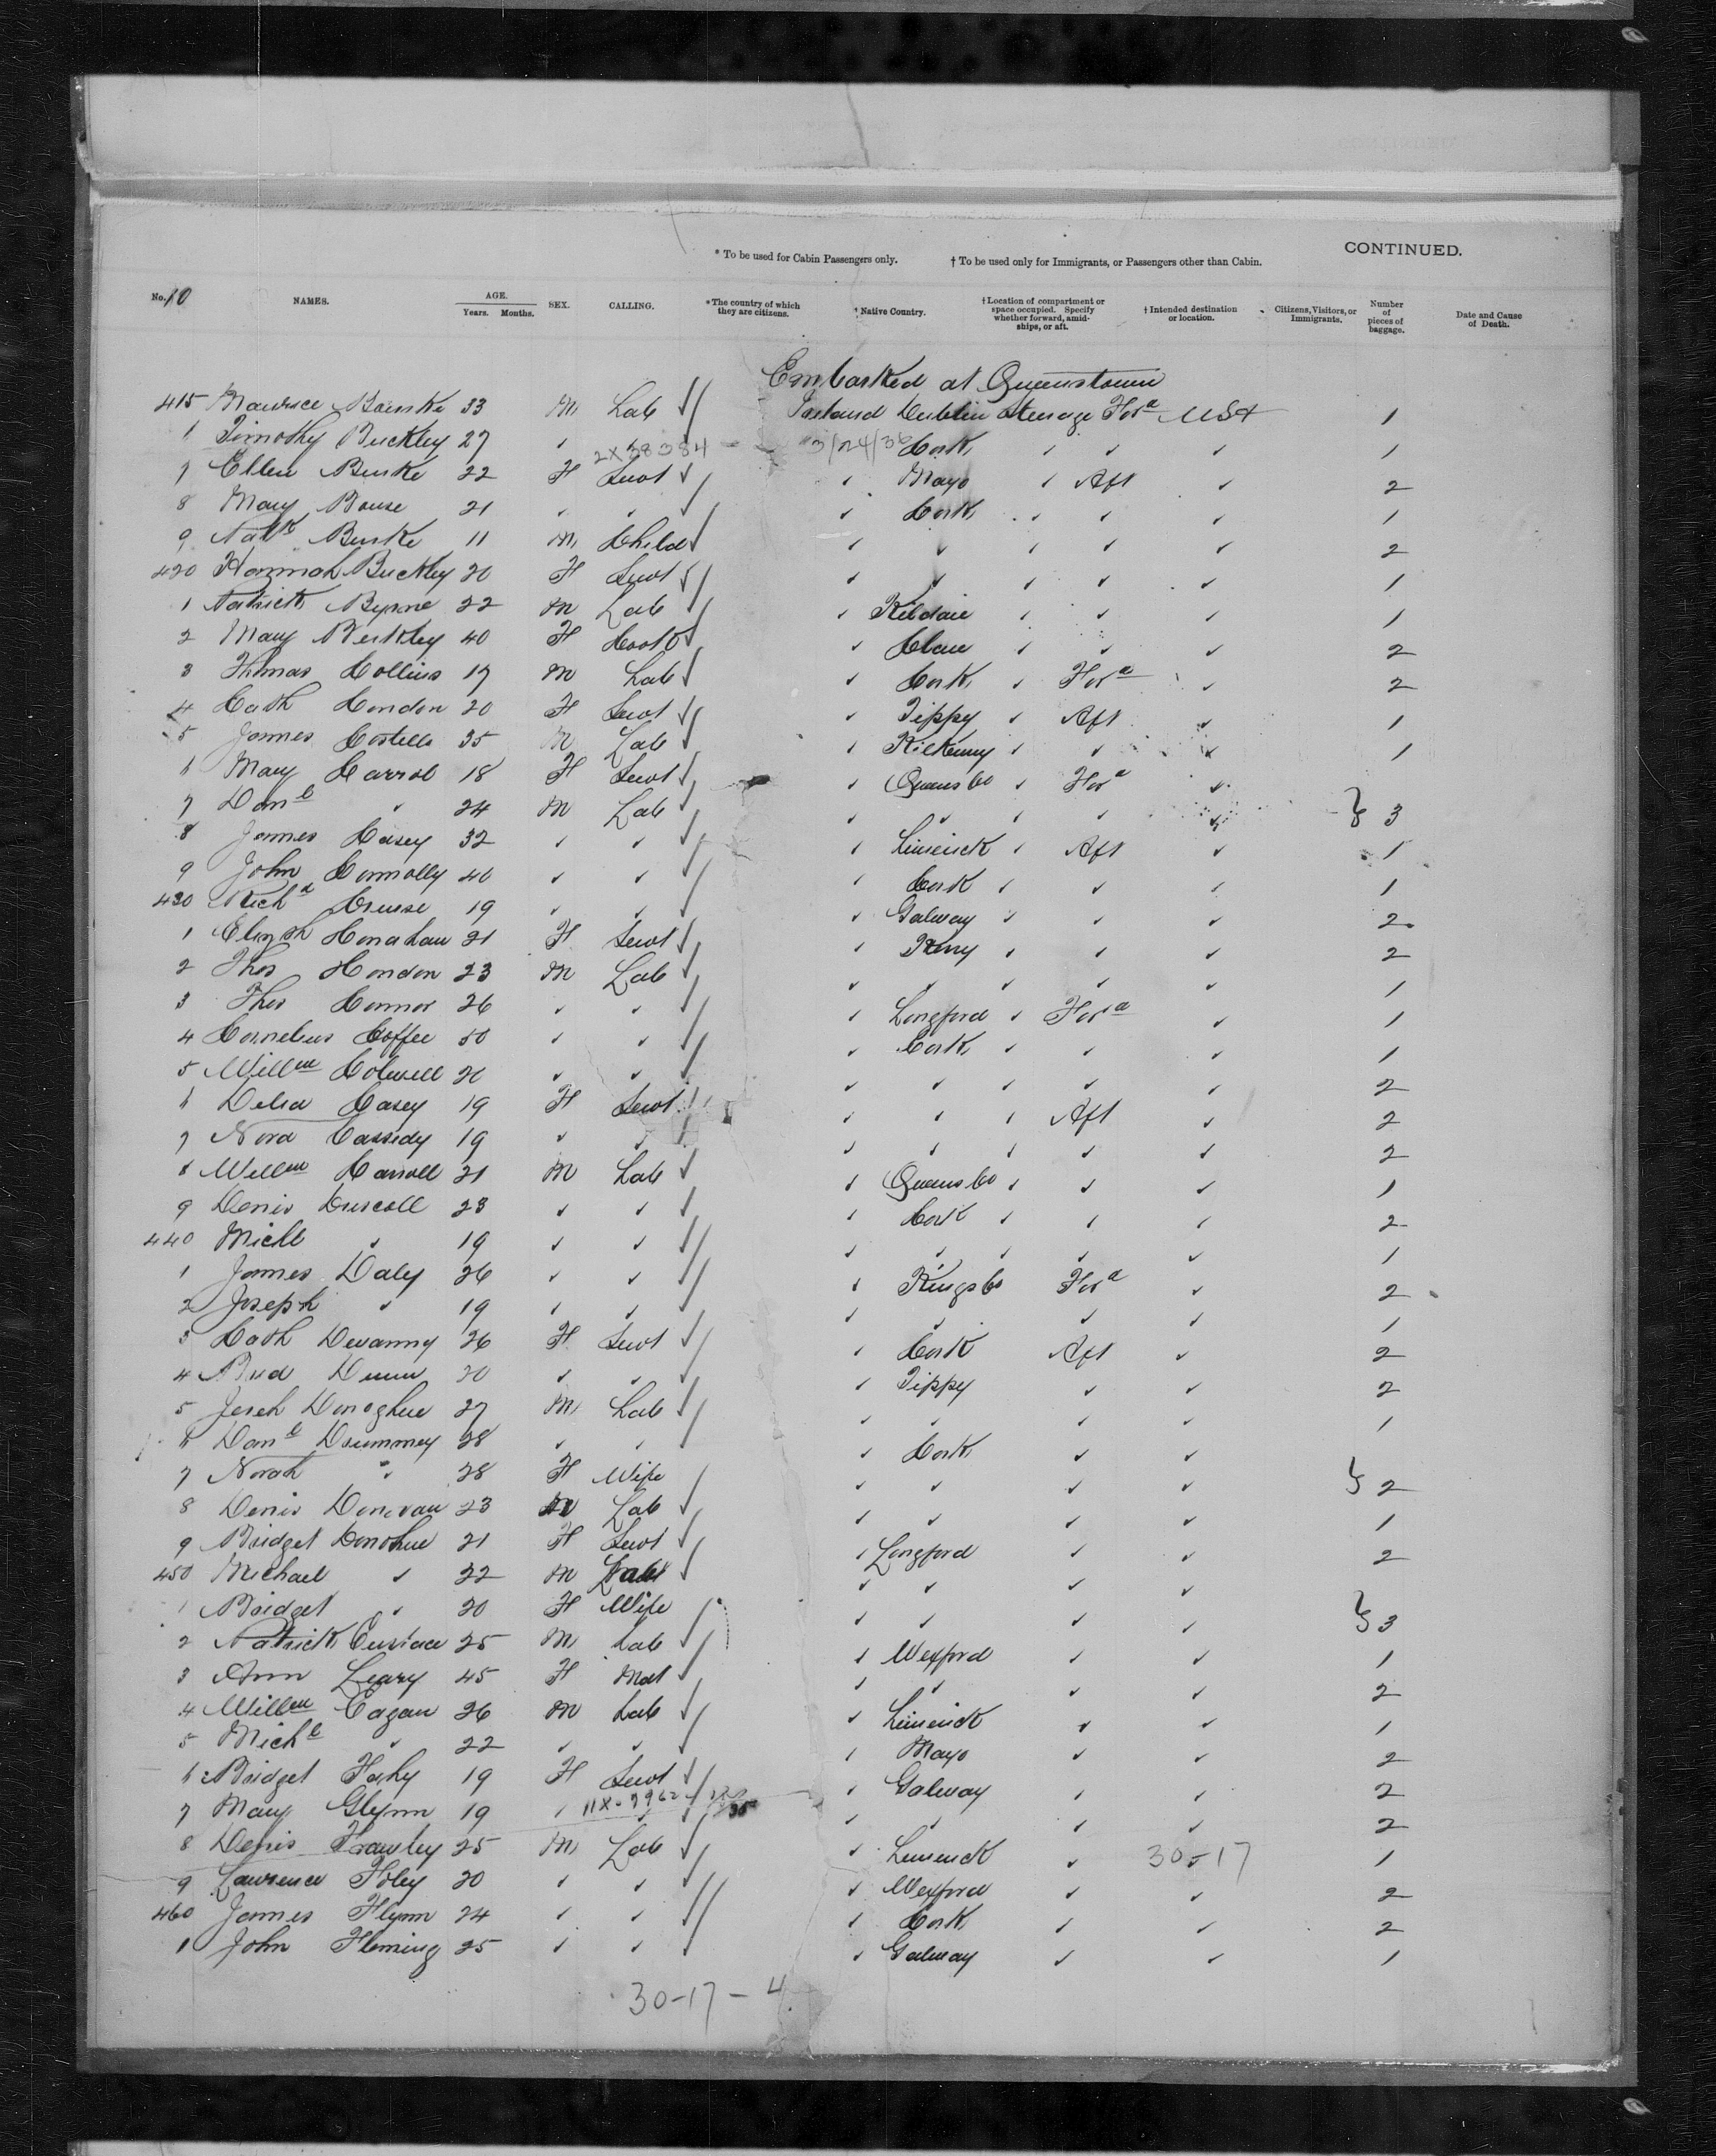 CONTINUED.
* To be used for Cabin Passengers only. † To be used only for Immigrants, or Passengers other than Cabin.
No. 10 NAMES. AGE. Years. Months. SEX. CALLING. *The country of which they are citizens. † Native Country. † Location of compartment or space occupied. Specify whether forward, amidships, or aft. † Intended destination or location. Citizens, Visitors, or Immigrants. Number of pieces of baggage. Date and Cause of Death.
Embarked at Queenstown
415 Maurice 33 M Lab Ireland Dublin Steerage For^d USA 1
Timothy Buckley 27 ✓ 2X38384 3/24/36 Cork ✓ ✓ ✓ 1
7 Ellen Burke 22 F Servt ✓ Mayo ✓ Aft ✓ 2
8 Mary 21 ✓ ✓ ✓ Cork ✓ ✓ ✓ 1
9 Burke 11 M Child ✓ ✓ ✓ ✓ ✓ 2
420 Hannah Buckley 20 F Servt ✓ ✓ ✓ ✓ ✓ 1
1 Patrick Byrne 22 M Lab ✓ Kildare ✓ ✓ ✓ 1
2 Mary 40 F Cook ✓ Clare ✓ ✓ ✓ 2
3 Thomas Collins 17 M Lab ✓ Cork ✓ For^d ✓ 2
4 Cath Condon 20 F Servt ✓ Tippy ✓ Aft ✓ 1
5 James Costello 35 M Lab ✓ Kilkenny ✓ ✓ ✓ 1
6 Mary Carrol 18 F Servt ✓ Queens Co ✓ For^d ✓
7 Dan^l ✓ 24 M Lab ✓ ✓ ✓ ✓ ✓ } 3
8 James Casey 32 ✓ ✓ ✓ Limerick ✓ Aft ✓ 1
9 John Connolly 40 ✓ ✓ ✓ Cork ✓ ✓ ✓ 1
430 Rich^d 19 ✓ ✓ ✓ Galway ✓ ✓ ✓ 2
1 Honahan 21 F Servt ✓ Kerry ✓ ✓ ✓ 2
2 Thos Condon 23 M Lab ✓ ✓ ✓ ✓ ✓ 1
3 Thos Connor 26 ✓ ✓ ✓ Longford ✓ For^d ✓ 1
4 Cornelius Coffee 50 ✓ ✓ ✓ Cork ✓ ✓ ✓ 1
5 Will^m 20 ✓ ✓ ✓ ✓ ✓ ✓ ✓ 2
6 Delia Casey 19 F Servt ✓ ✓ ✓ Aft ✓ 2
7 Nora Cassidy 19 ✓ ✓ ✓ ✓ ✓ ✓ ✓ 2
8 Will^m Carroll 21 M Lab ✓ Queens Co ✓ ✓ ✓ 1
9 Denis Driscoll 23 ✓ ✓ ✓ Cork ✓ ✓ ✓ 2
440 Michl ✓ 19 ✓ ✓ ✓ ✓ ✓ ✓ ✓ 1
1 James Daly 26 ✓ ✓ ✓ Kings Co For^d ✓ 2
2 Joseph ✓ 19 ✓ ✓ ✓ ✓ ✓ ✓ 1
3 Cath Devanny 26 F Servt ✓ Cork Aft ✓ 2
4 Brid Dunn 20 ✓ ✓ ✓ Tippy ✓ ✓ 2
5 Donoghue 27 M Lab ✓ ✓ ✓ ✓ ✓ 1
6 Dan^l Drummey 28 ✓ ✓ ✓ Cork ✓ ✓
7 Norah ✓ 28 F Wife ✓ ✓ ✓ ✓ } 2
8 Denis Donovan 23 M Lab ✓ ✓ ✓ ✓ ✓ 1
9 Bridget Donohue 21 F Servt ✓ Longford ✓ ✓ 2
450 Michael ✓ 22 M Lab ✓ ✓ ✓ ✓ ✓
1 Bridget ✓ 20 F Wife ✓ ✓ ✓ ✓ } 3
2 Patrick Eustace 25 M Lab ✓ Wexford ✓ ✓ 1
3 Ann Leary 45 F ✓ ✓ ✓ ✓ ✓ 2
4 Will^m Eagan 26 M Lab ✓ Limerick ✓ ✓ 1
5 Mich^l ✓ 22 ✓ ✓ ✓ Mayo ✓ ✓ 2
6 Bridget Fahy 19 F Servt ✓ Galway ✓ ✓ 2
7 Mary Glynn 19 ✓ 11X-7962 ✓ ✓ ✓ ✓ 2
8 Denis Frawley 25 M Lab ✓ Limerick ✓ 30-17 1
9 Lawrence Foley 20 ✓ ✓ ✓ Wexford ✓ ✓ 2
460 James Flynn 24 ✓ ✓ ✓ Cork ✓ ✓ 2
1 John Fleming 25 ✓ ✓ ✓ Galway ✓ ✓ 1
30-17-4